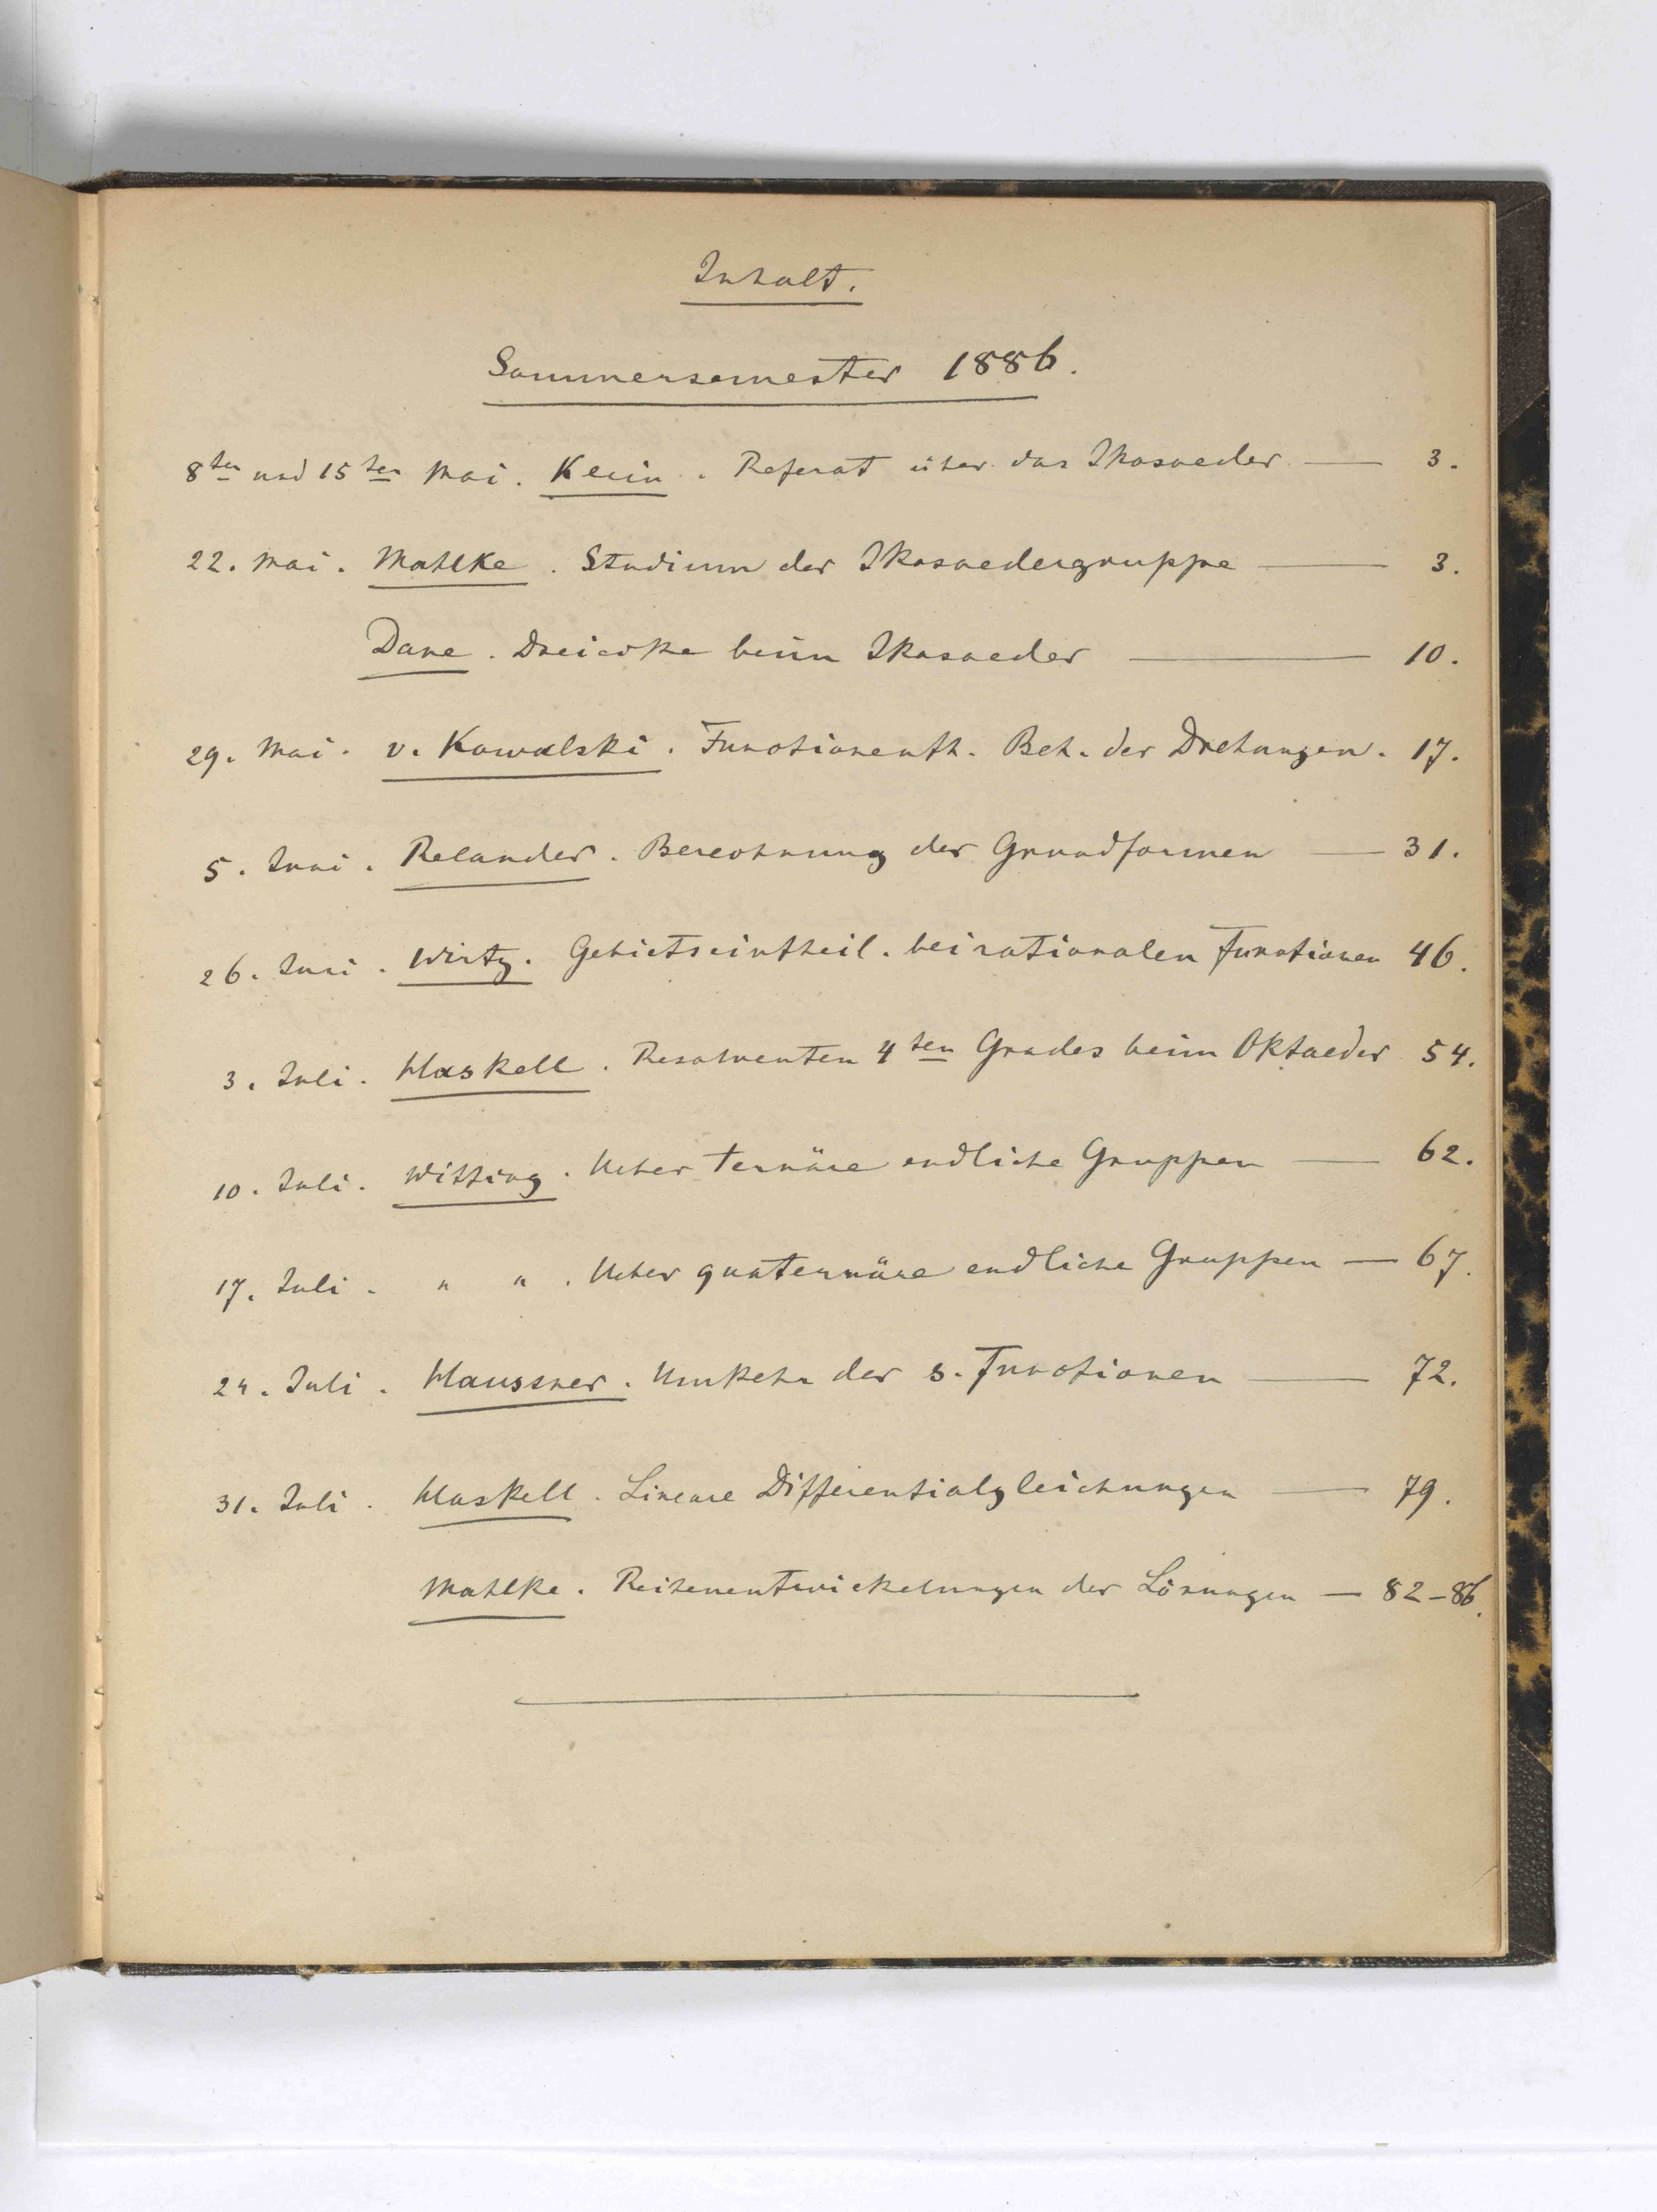 Inhalt.
Sommersemester 1886.
8ten und 15ten Mai. Klein. Referat über das Ikosaeder — 3.
22. Mai. Mahlke. Studium der Ikosaedergruppe — 3.
Dane. Dreiecke beim Ikosaeder — 10.
29. Mai. v. Kowalski. Functionenth. Beh. der Drehungen. 17.
5. Juni. Relander. Berechnung der Grundformen — 31.
26. Juni. Wirtz. Gebietseintheil. bei rationalen Functionen 46.
3. Juli. Haskell. Resolventen 4ten Grades beim Oktaeder 54.
10. Juli. Witting. Ueber ternäre endliche Gruppen — 62.
17. Juli. " " . Ueber quaternäre endliche Gruppen — 67.
24. Juli. Haussner. Umkehr der s. Functionen — 72.
31. Juli. Haskell. Lineare Differentialgleichungen — 79.
Mahlke. Reihenentwickelungen der Lösungen — 82–86.